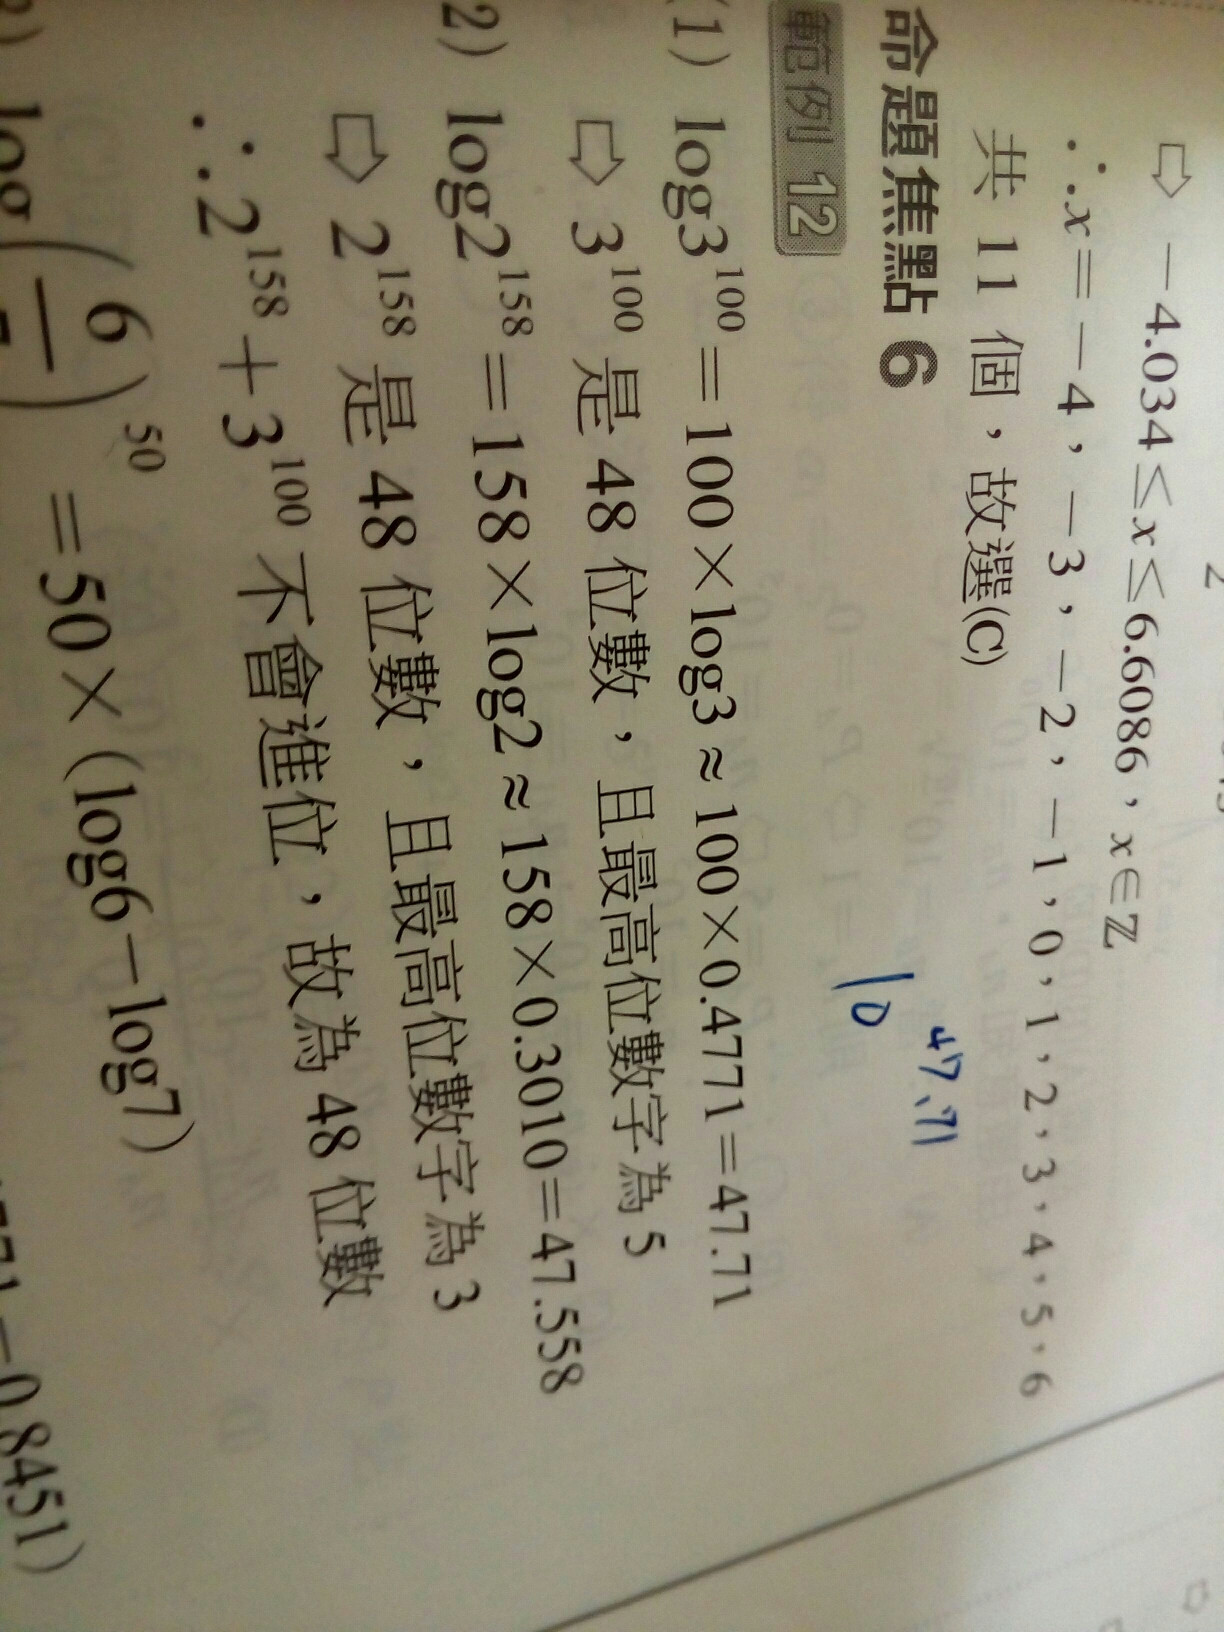 ⇨ －4.034≤x≤6.6086，x∈ℤ
∴x＝－4，－3，－2，－1，0，1，2，3，4，5，6
共 11 個，故選(C)
47.71
10
命題焦點 6
範例 12
(1) log3¹⁰⁰＝100×log3≈100×0.4771＝47.71
⇨ 3¹⁰⁰ 是 48 位數，且最高位數字為 5
2) log2¹⁵⁸＝158×log2≈158×0.3010＝47.558
⇨ 2¹⁵⁸ 是 48 位數，且最高位數字為 3
∴2¹⁵⁸＋3¹⁰⁰ 不會進位，故為 48 位數
) log(6/7)⁵⁰＝50×(log6－log7)
771－0.8451)